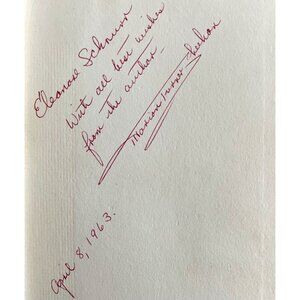 Eleanore Schnurr
With all best wishes
from the author—
Marion Turner Sheehan
April 8, 1963.